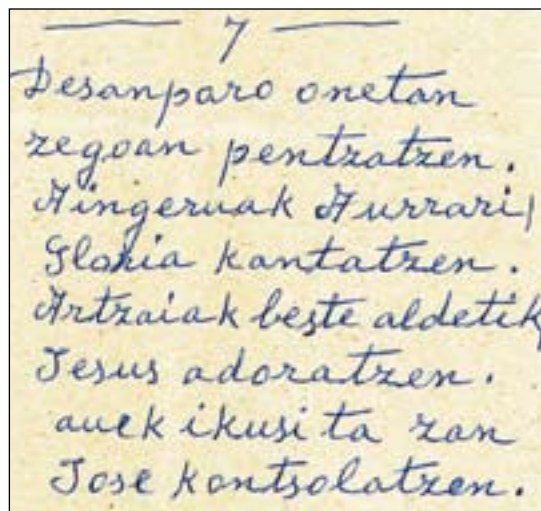 7
Desanparo onetan
zegoan pentzatzen.
Aingeruak Aurrari,
Gloria kantatzen.
Artzaiak beste aldetik,
Jesus adoratzen.
auek ikusi ta zan
Jose kontsolatzen.